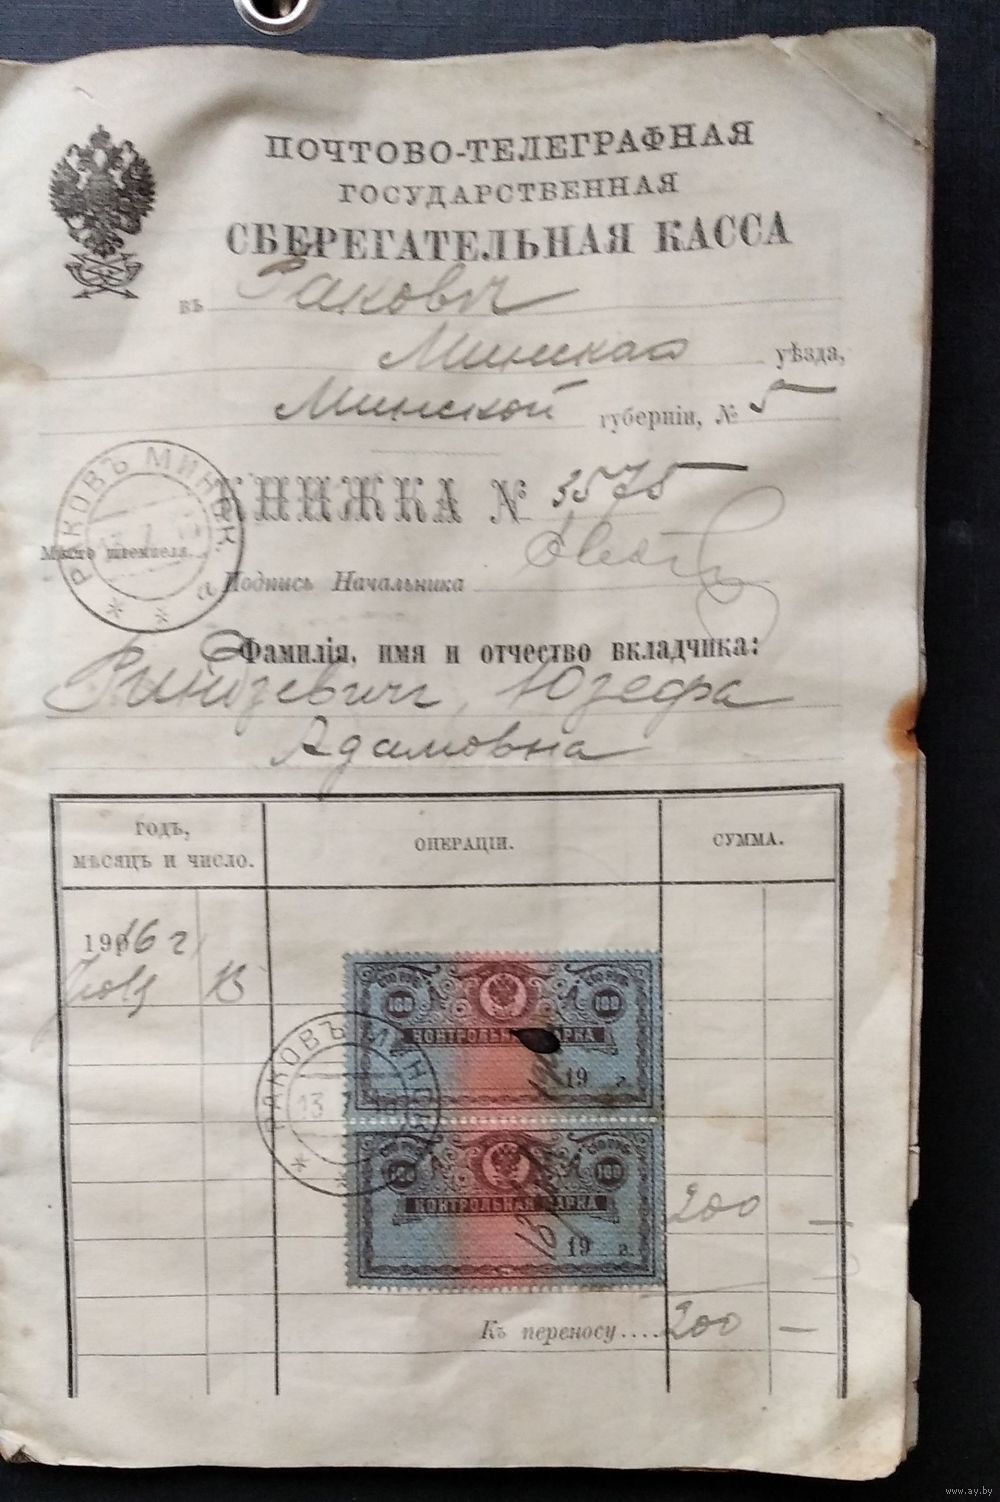 ПОЧТОВО-ТЕЛЕГРАФНАЯ
ГОСУДАРСТВЕННАЯ
СБЕРЕГАТЕЛЬНАЯ КАССА
въ Раковѣ
Минскаго уѣзда,
Минской губерніи, № 5
КНИЖКА № 3575
РАКОВЪ МИНСК.
Мѣсто штемпеля.
Подпись Начальника
Фамилія, имя и отчество вкладчика:
Юзефа
Адамовна
ГОДЪ,
МѢСЯЦЪ И ЧИСЛО.
ОПЕРАЦІИ.
СУММА.
1916 г.
13
СТО РУБ. СТО РУБ.
100 100
КОНТРОЛЬНАЯ МАРКА
19 г.
РАКОВЪ МИНСК.
13
СТО РУБ. СТО РУБ.
100 100
КОНТРОЛЬНАЯ МАРКА
19 г.
200 —
Къ переносу.... 200 —
www.ay.by